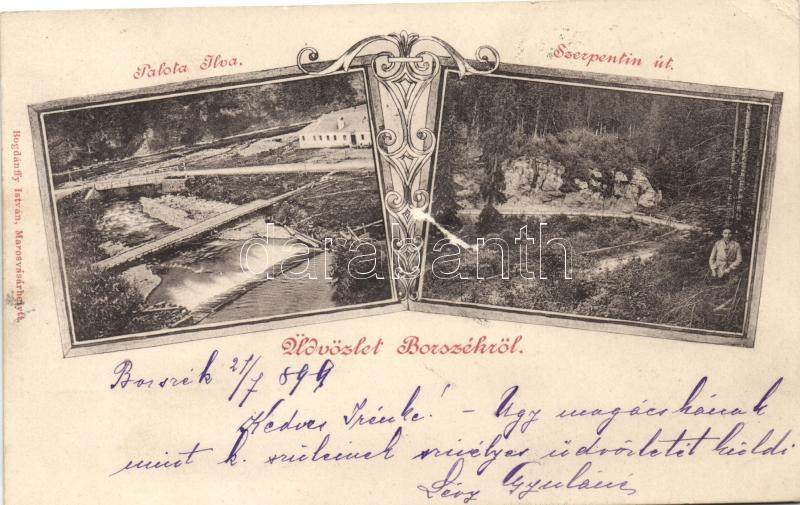 Palota Ilva.
Szerpentin út.
Bogdánffy István, Marosvásárhelytt.
darabanth
Üdvözlet Borszékről.
Borszék 21/7 899
Kedves Irénke! – Úgy magácskának
mint k. szüleinek szívélyes üdvözletét küldi
Lévy Gyuláné